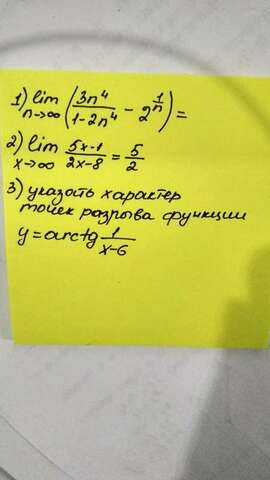 1) lim n→∞ (3n⁴/(1-2n⁴) - 2^(1/n)) =
2) lim x→∞ (5x-1)/(2x-8) = 5/2
3) указать характер
точек разрыва функции
y = arctg 1/(x-6)